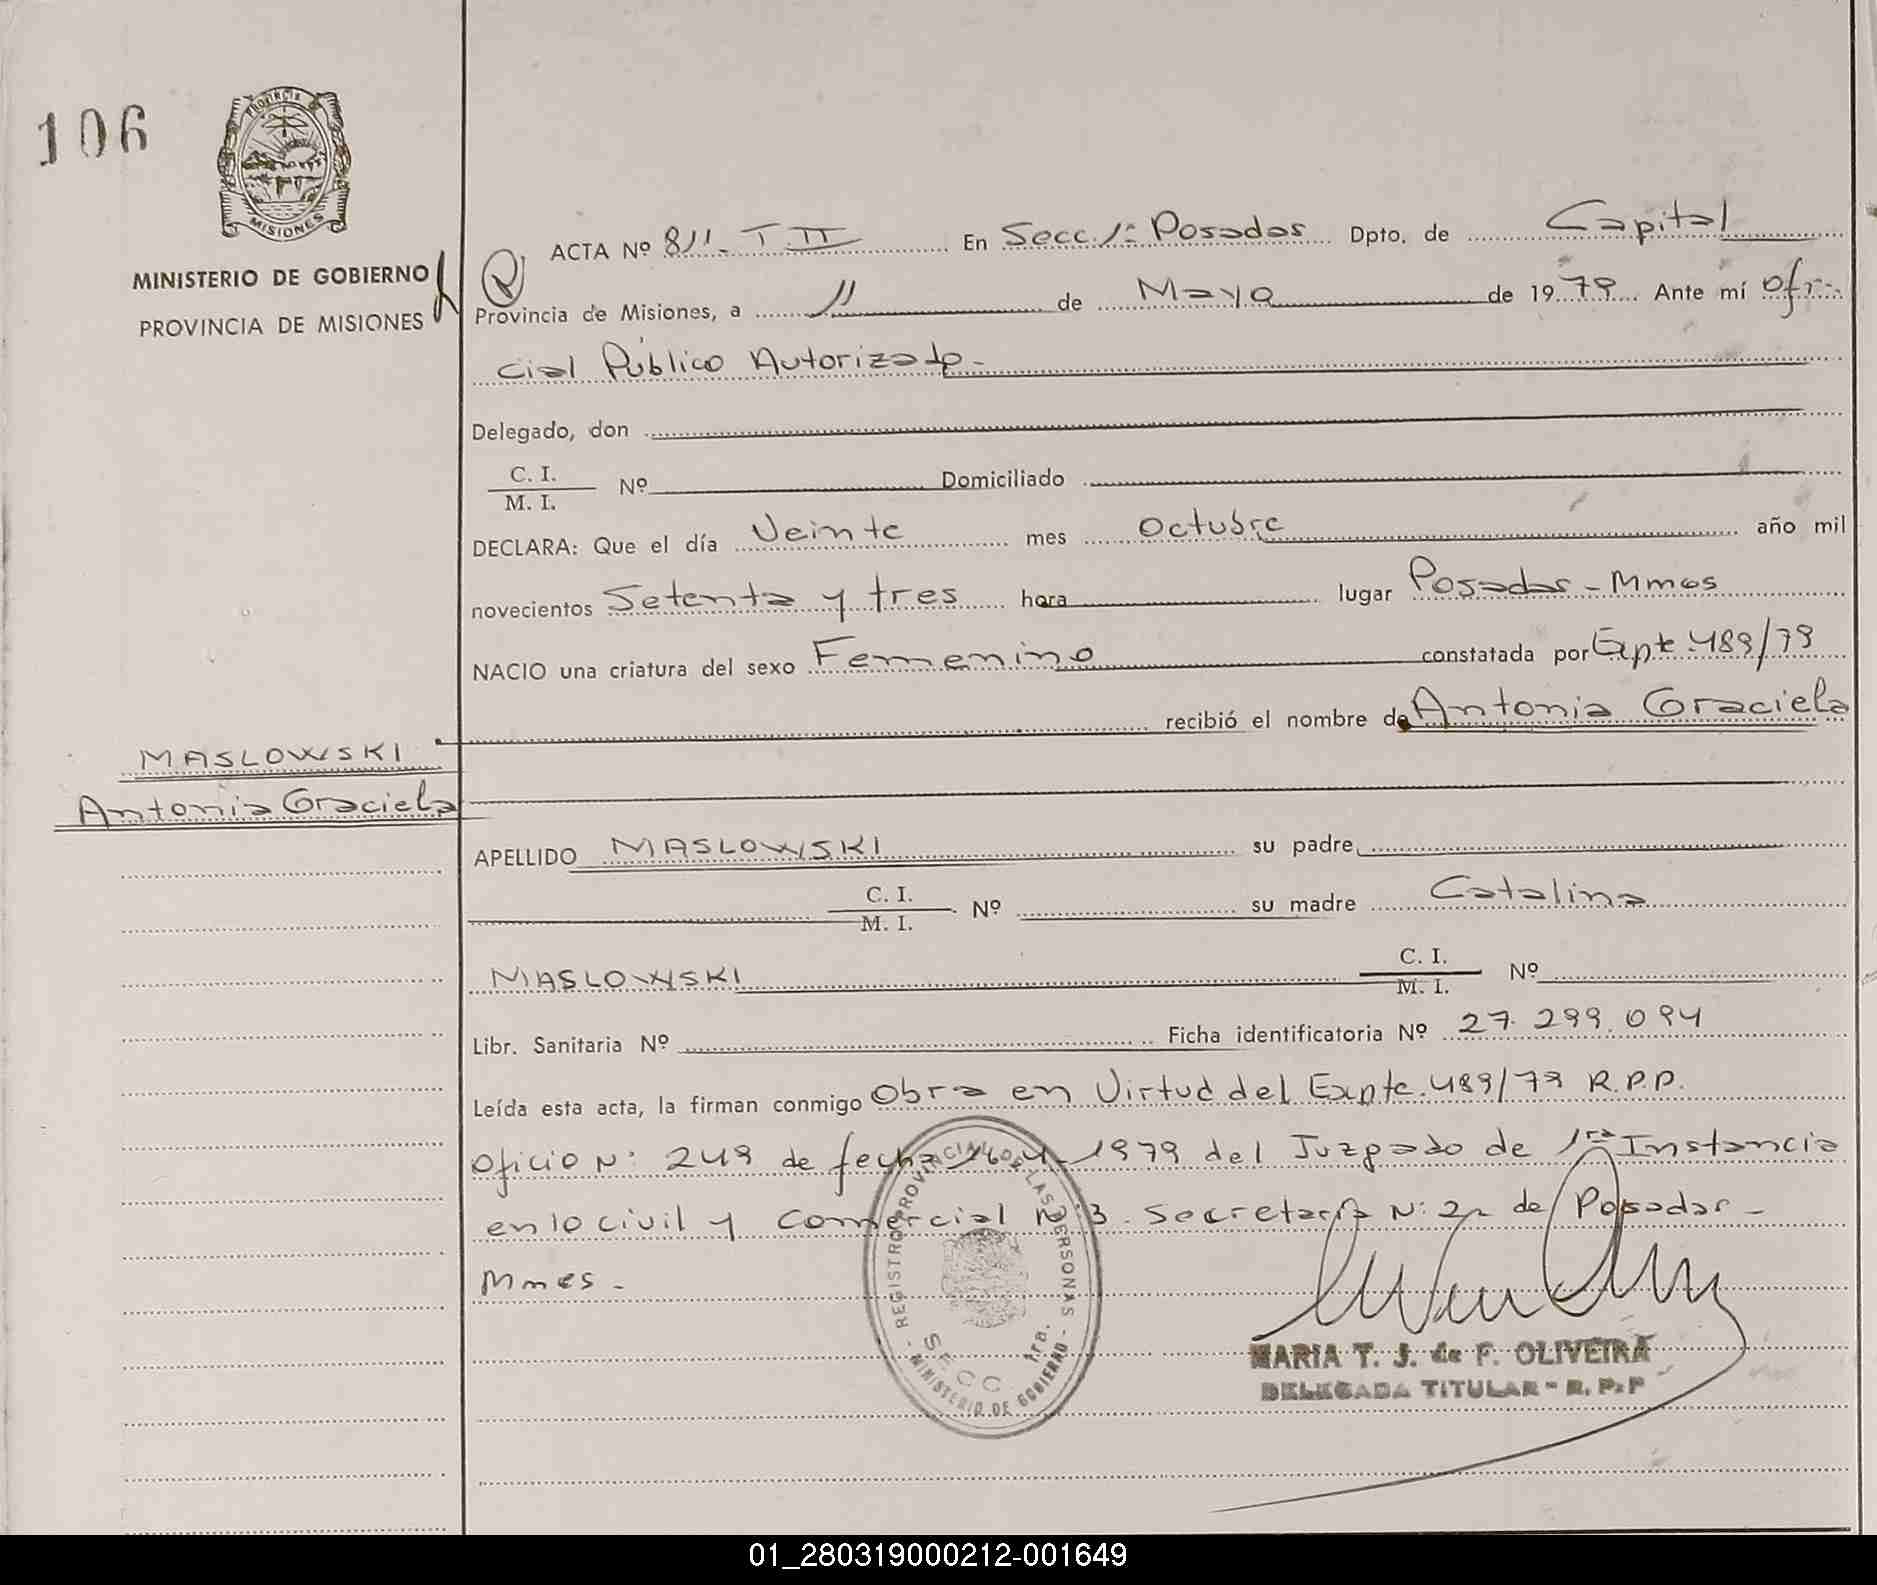 106
PROVINCIA DE
MISIONES
MINISTERIO DE GOBIERNO
PROVINCIA DE MISIONES
ACTA Nº 811- T II En Secc. 1ª Posadas Dpto. de Capital
Provincia de Misiones, a 11 de Mayo de 1979 Ante mí Ofi-
cial Público Autorizado-
Delegado, don
C. I.
M. I. Nº Domiciliado
DECLARA: Que el día Veinte mes octubre año mil
novecientos Setenta y tres hora lugar Posadas - Mnes
NACIO una criatura del sexo Femenino constatada por Expte 489/79
recibió el nombre de Antonia Graciela
MASLOWSKI
Antonia Graciela
APELLIDO MASLOWSKI su padre
C. I.
M. I. Nº su madre Catalina
MASLOWSKI C. I.
M. I. Nº
Libr. Sanitaria Nº Ficha identificatoria Nº 27.299.094
Leída esta acta, la firman conmigo Obra en Virtud del Expte. 489/79 R.P.P.
Oficio N: 249 de fecha 16-4-1979 del Juzgado de 1ra Instancia
en lo civil y Comercial N: 3. Secretaría N: 2 de Posadas -
Mnes -
REGISTRO PROVINCIAL DE LAS PERSONAS
SECC 1ra.
- MINISTERIO DE GOBIERNO -
MARIA T. J. de F. OLIVEIRA
DELEGADA TITULAR - R. P. P
01_280319000212-001649